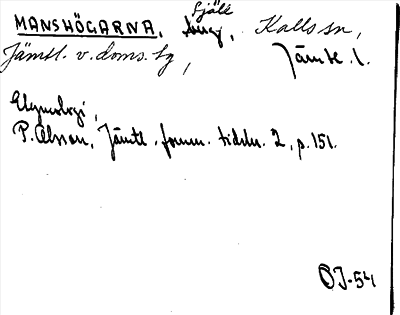 MANSHÖGARNA, fjäll, Kalls sn,
Jämtl. v. doms. tg, Jämtl. l.
Etymologi,
P. Olsson, Jämtl. fornm. tidskr. 2, p. 151.
OJ-54